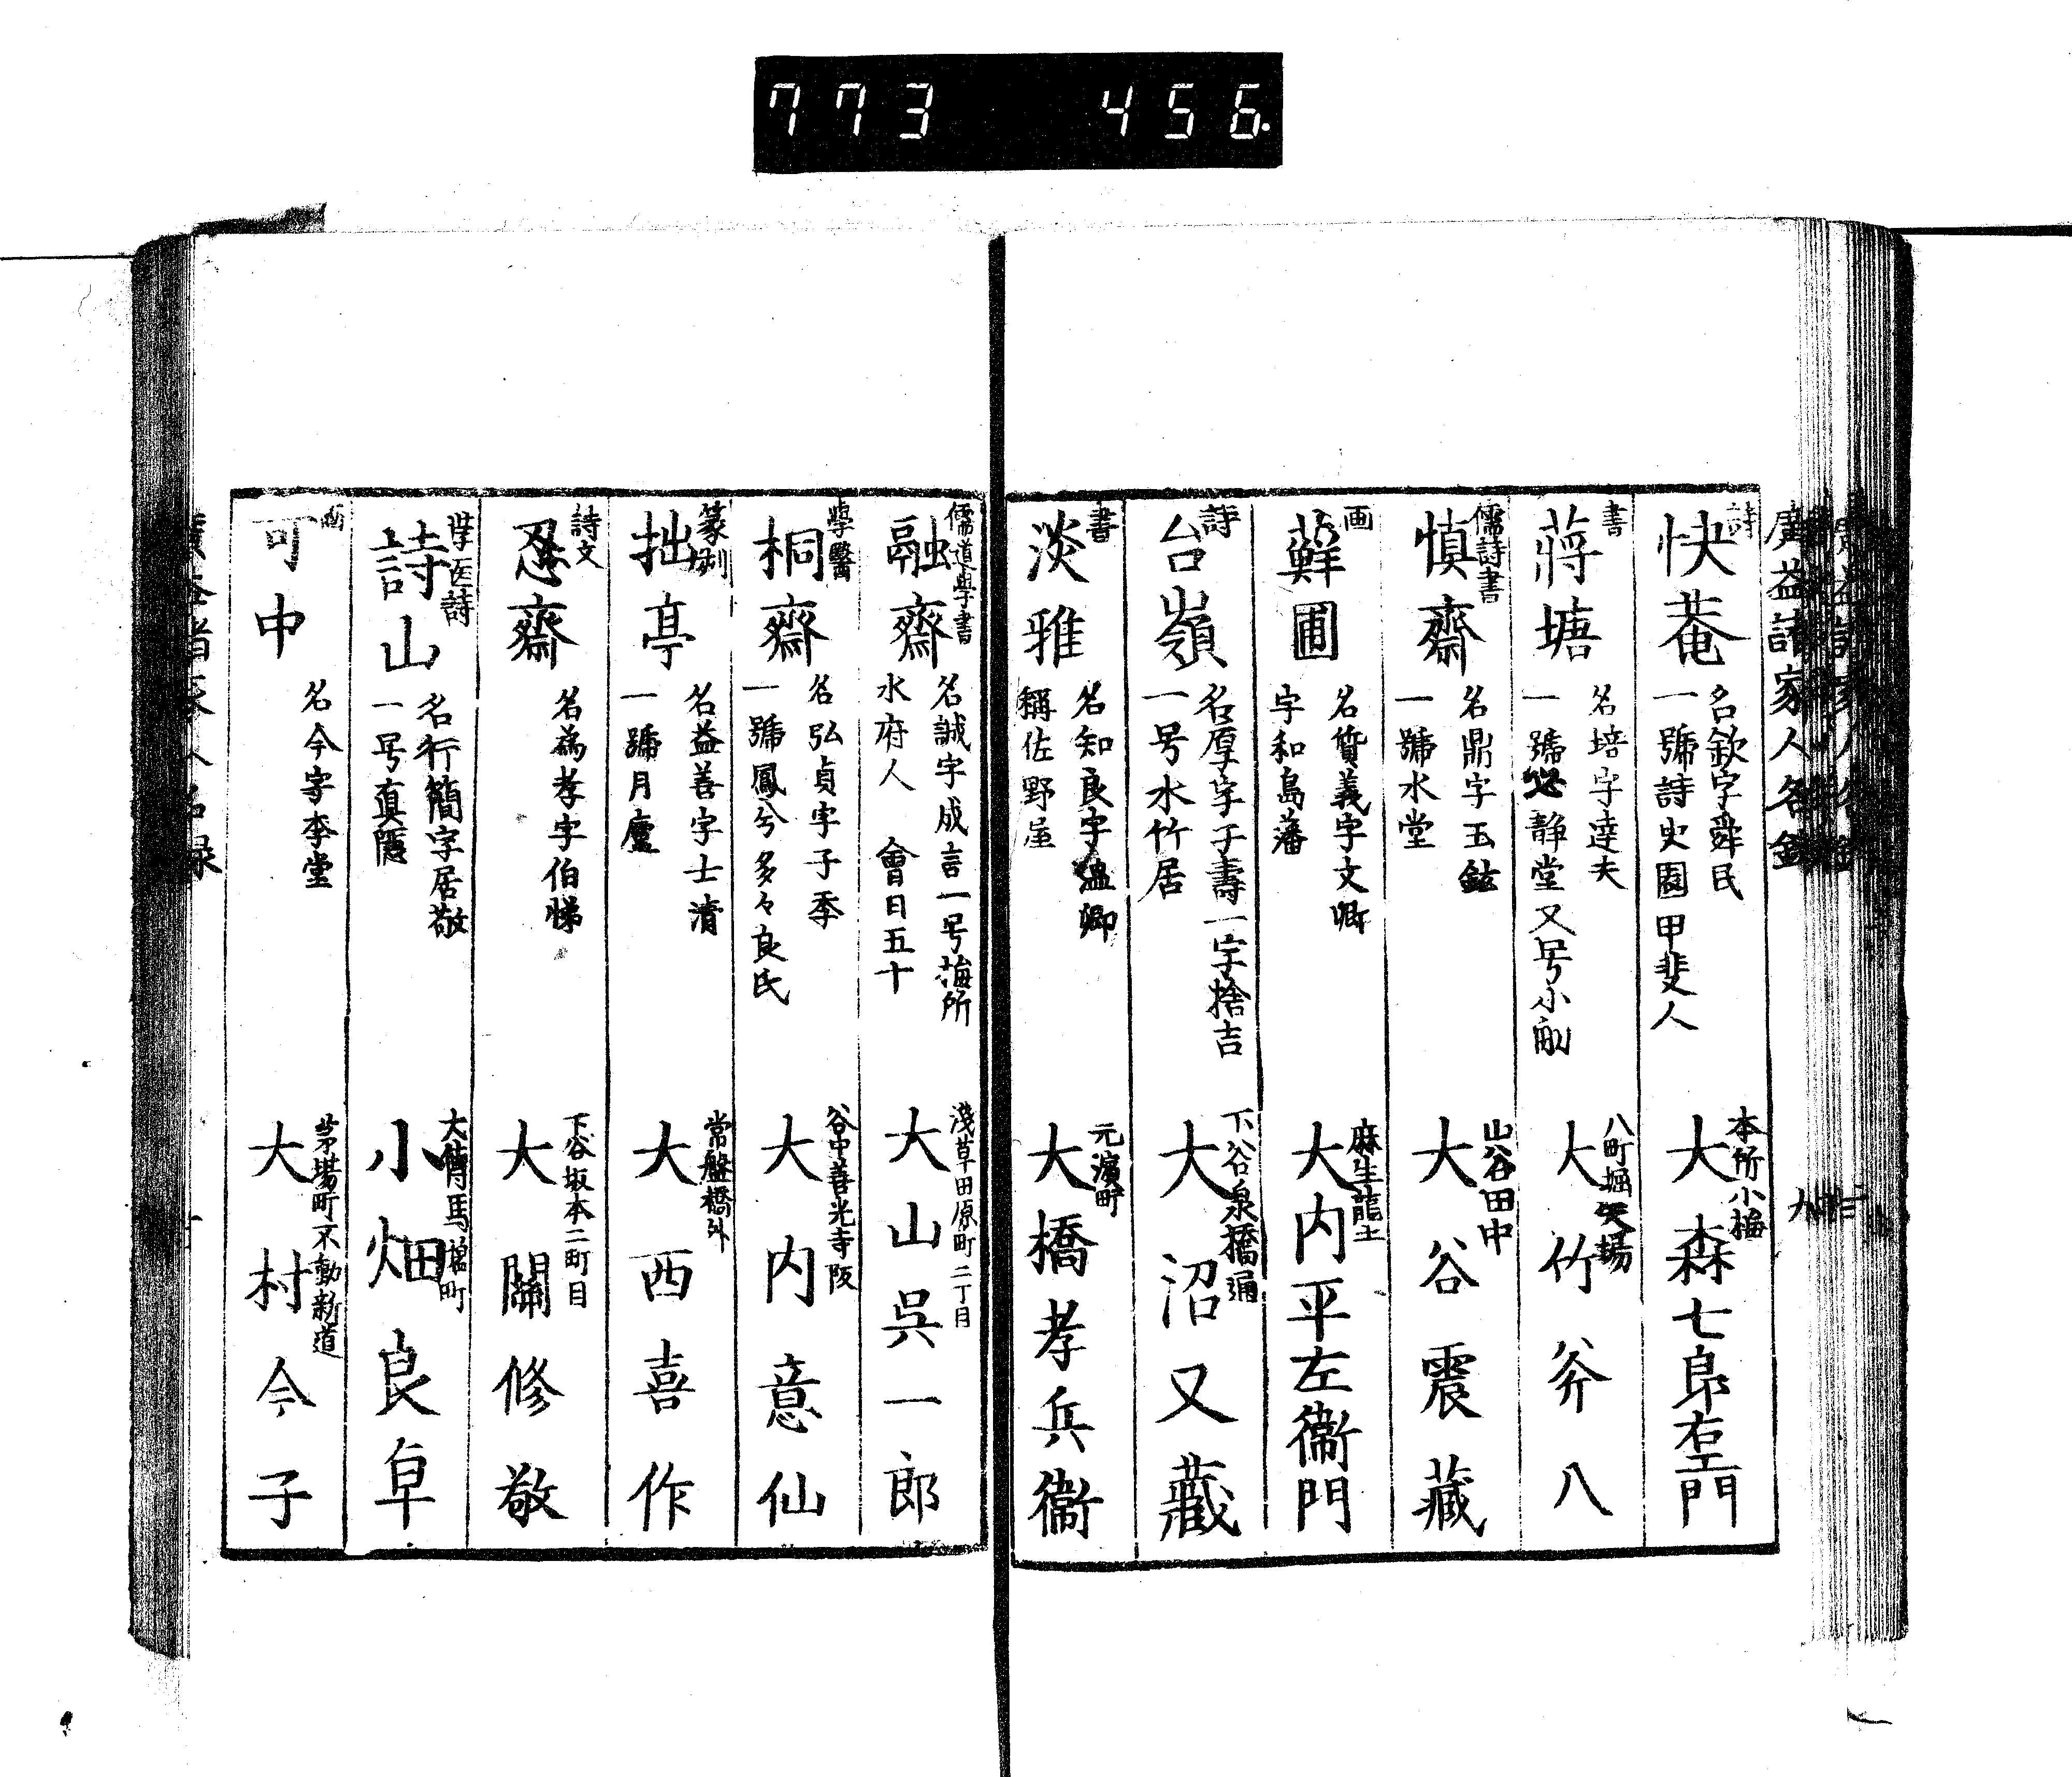 773 456
廣益諸家人名録
詩
快菴
名欽字舜民
一號詩史園甲斐人
本所小梅
大森七郎右エ門
書
蔣塘
名培字達夫
静堂又号小
八町堀
大竹斧八
儒詩書
慎齋
名鼎字玉鉉
一號水堂
山谷田中
大谷震藏
画
蘚圃
名質義字文卿
宇和島藩
麻生龍土
大内平左衞門
詩
台嶺
名厚字子壽一字捨吉
一号水竹居
下谷泉橋通
大沼又藏
書
淡雅
名知良字温卿
稱佐野屋
元濱町
大橋孝兵衞
儒道學書
融齋
名誠字成言一号梅所
水府人 會日五十
淺草田原町二丁目
大山呉一郎
學醫
桐齋
名弘貞字子季
一號鳳兮多々良氏
谷中善光寺阪
大内意仙
篆刻
拙亭
名益善字士清
一號月廬
常盤橋外
大西喜作
詩文
忍齋
名為孝字伯悌
下谷坂本二町目
大關修敬
学医詩
詩山
名行簡字居敬
一号真隱
大傳馬塩町
小畑良卓
画
可中
名今字李堂
茅場町不動新道
大村今子